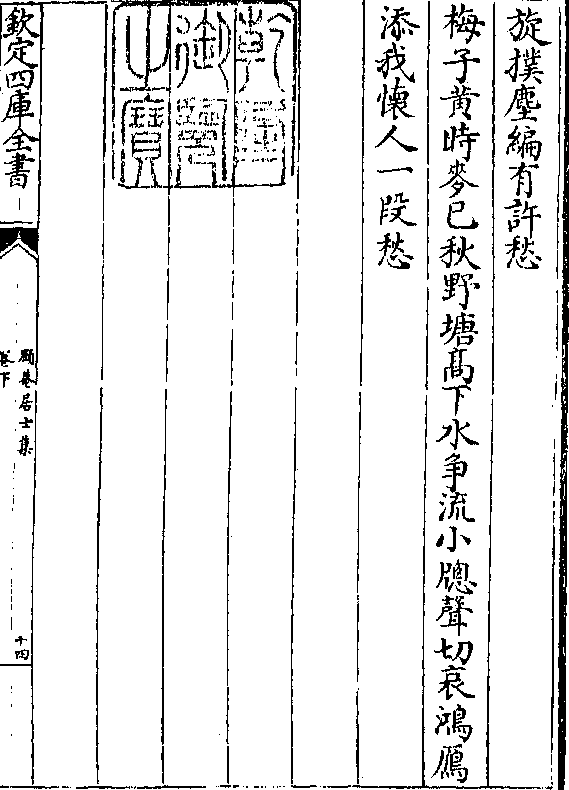 旋撲塵編有許愁
梅子黄時麥已秋野塘髙下水争流小牕聲切哀鴻鴈
添我懷人一段愁
乾隆
御覽
之寳
欽定四庫全書
頤菴居士集
卷下
十四